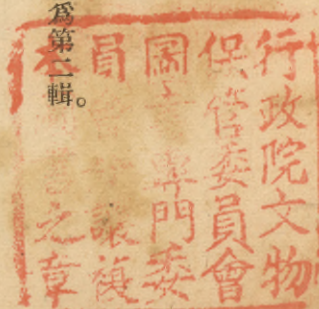 行政院文物
保管委員會
圖書專門委
員讓複
本書之章
爲第二輯。